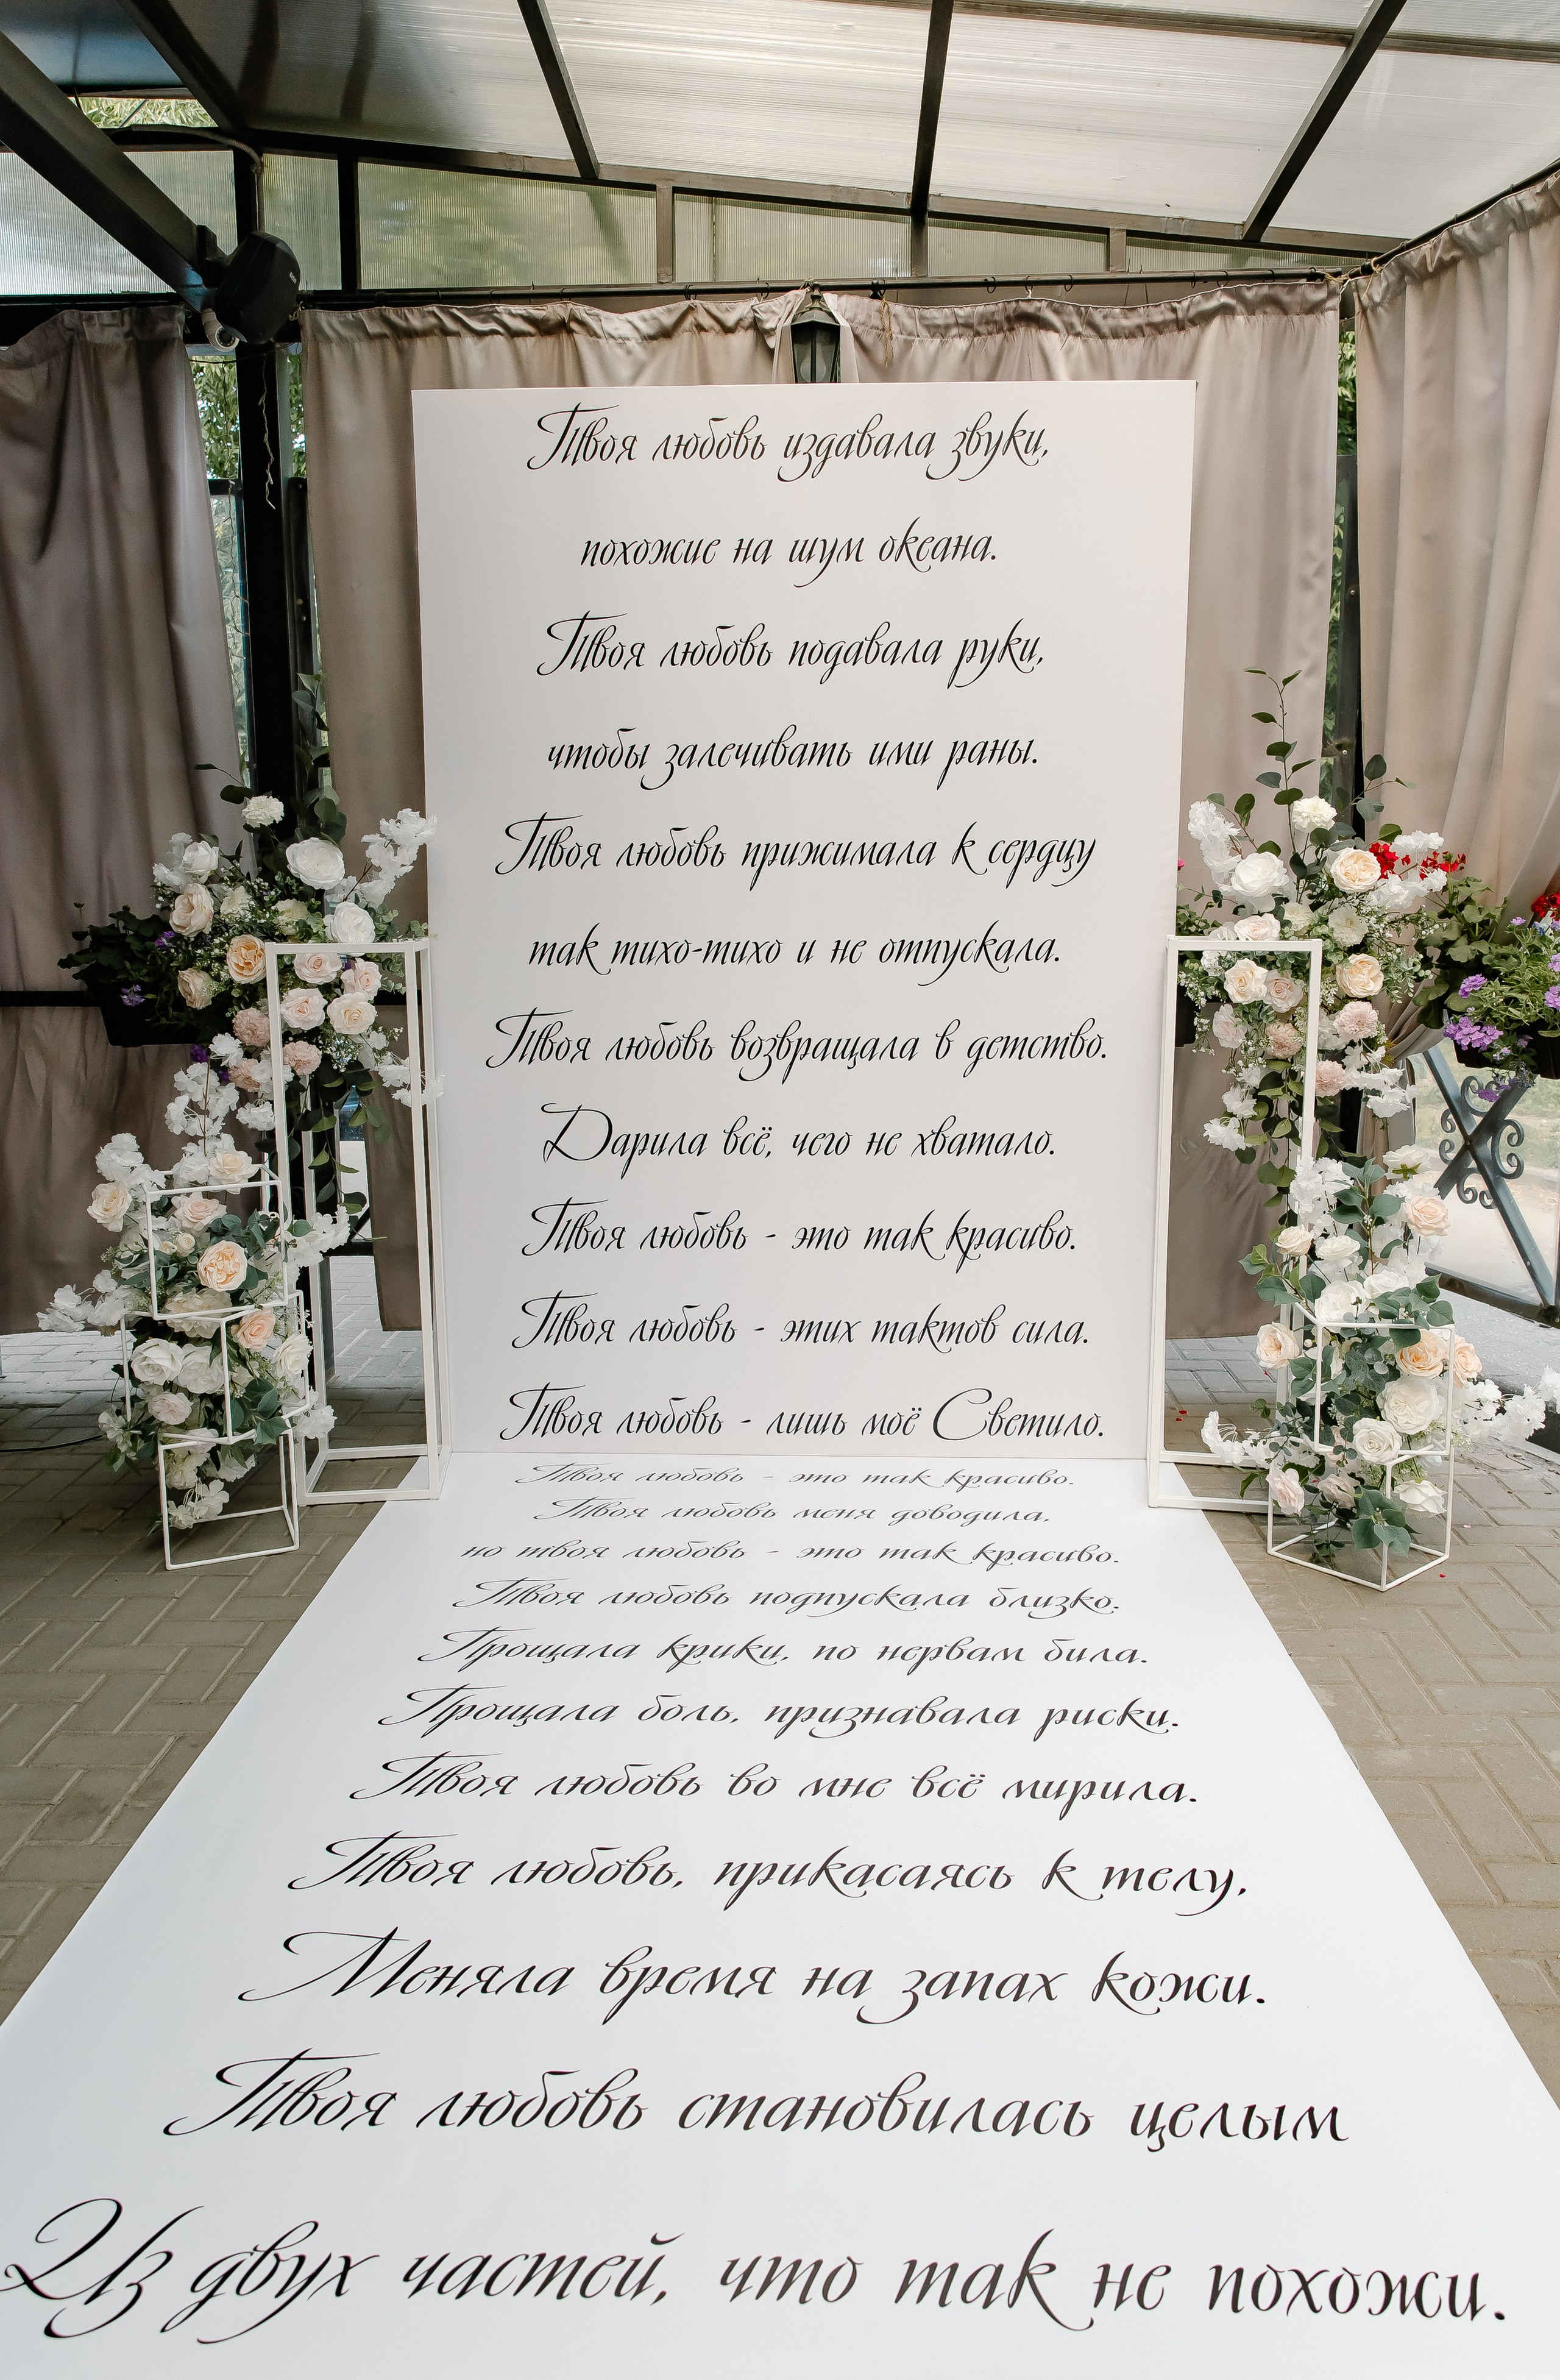 Твоя любовь издавала звуки,
похожие на шум океана.
Твоя любовь подавала руки,
чтобы залечивать ими раны.
Твоя любовь прижимала к сердцу
так тихо-тихо и не отпускала.
Твоя любовь возвращала в детство.
Дарила всё, чего не хватало.
Твоя любовь - это так красиво.
Твоя любовь - этих тактов сила.
Твоя любовь - лишь моё Светило.
Твоя любовь - это так красиво.
Твоя любовь меня доводила,
но твоя любовь - это так красиво.
Твоя любовь подпускала близко;
Прощала крики, по нервам била.
Прощала боль, признавала риски.
Твоя любовь во мне всё мирила.
Твоя любовь, прикасаясь к телу,
Меняла время на запах кожи.
Твоя любовь становилась целым
Из двух частей, что так не похожи.